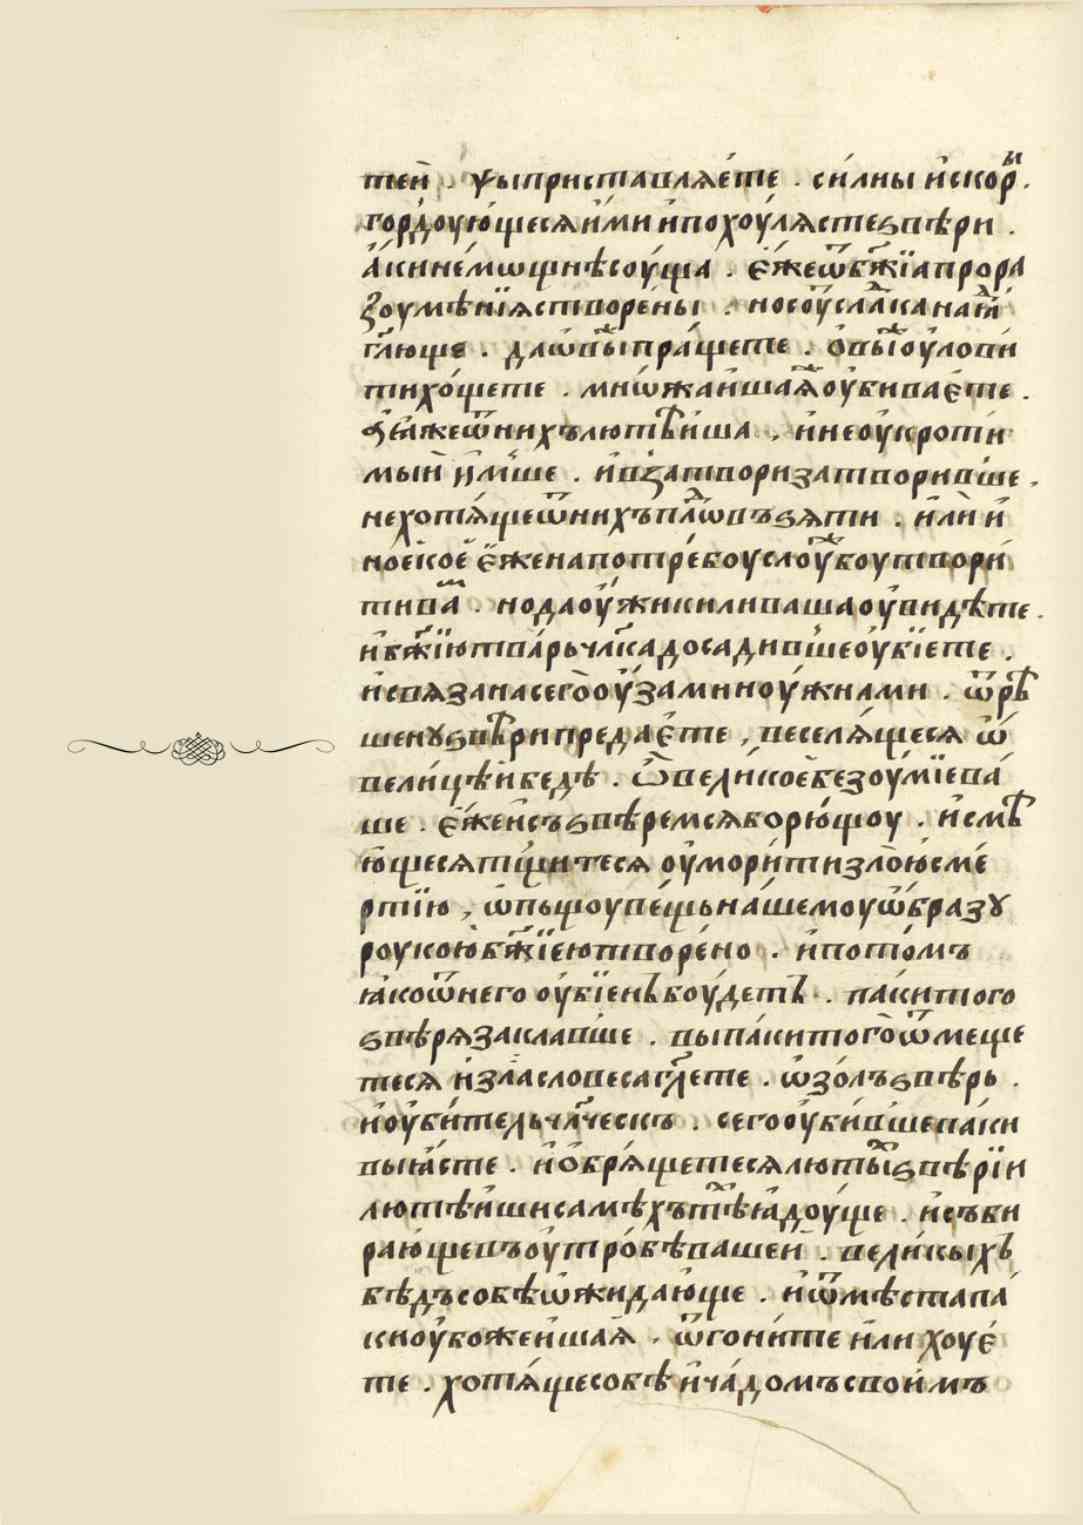 тей . ѱы приставляе́те . си́лны и҆ скорꙑ .
гордоую́щеся и҆́ми и҆ похоу́лясте ѕвѣри .
а҆́ки не́мощнѣ соу́ща . є҆́же ѿ бж҃їа про ра
зоумѣнїя створе́ны . но соу꙽сла́ка нагл҃
гл҃юще . да ловы̑ пра́щете . о҆вы̑ оу҆лови́
ти хо́щете . мнѡ́жаишаа̑ оу҆бива́єте .
ѕѣ́л же ѿ нихъ лютѣи҆ша , и҆ не оу҆кроти́
мый и҆мше . и҆ в꙽ затвори затворивше ,
не хотя́ще ѿ нихъ пло́въ ѕяти . и҆ли́ и҆
ное́ ское́ є҆́же на потре́боу слоу́жбоу твори́
ти ва́м . но да оу҆́жики ли ваша оу҆видѣте .
и҆ бж҃їю тва́рь чл҃ка досадивше оу҆бїете .
и҆ связана сего̀ оу҆́зами ноу́жнами . ѿ рѣ
шенꙋ ѕвѣ́ри предає́те , веселя́щеся ѡ҆́
вели́цѣй бедѣ . Ѽ вели́кое безоу́мїе ва́
ше . є҆́же и҆ съ ѕвѣремся борю́щоу . и҆ смѣ
ю́щеся тщи́теся оу҆мори́ти зло́ю сме́
ртїю , ѡ҆пьщоу пе́щь на́шемоу ѡ҆́бразꙋ
роукою̀ бж҃їею творе́но . и҆ пото́мъ
ꙗ҆ко ѿ него оу҆бїенъ боу́детъ . па́ки того
ѕвѣря заклавше . вы па́ки того̀ ѿмеще
теся и҆ зла словеса гл҃ете . ѡ҆ зо́лъ ѕвѣрь .
и҆ оу҆би́тель чл҃ческъ . сего оу҆би́вше па́ки
вы ꙗ҆́сте . и҆ о҆бря́щетеся лютых̑ ѕвѣрїи
лютѣи҆ши самѣхъ тѣх̑ ꙗ҆доу́ще . и҆ съби
ра́юще въ оу҆тро́бѣ вашей . вели́кыхъ
бѣдъ собѣ ѡ҆жида́юще . и҆ ѿ мѣста па́
ки оу҆божеи҆шаѧ̀ . ѿгони́те и҆ли хоуе҆́
те . хотя́ще собѣ и҆ ча́домъ свои҆мъ